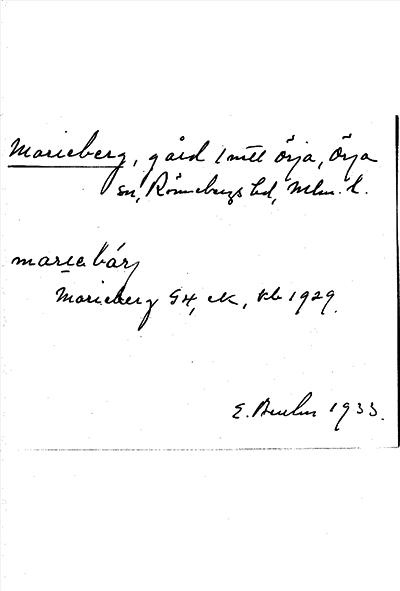 Marieberg, gård 1 mtl Örja, Örja
sn, Rönnebergs hd, Mlm. l.
marebárj
Marieberg GK, eK, Kb 1929.
E. 1933.